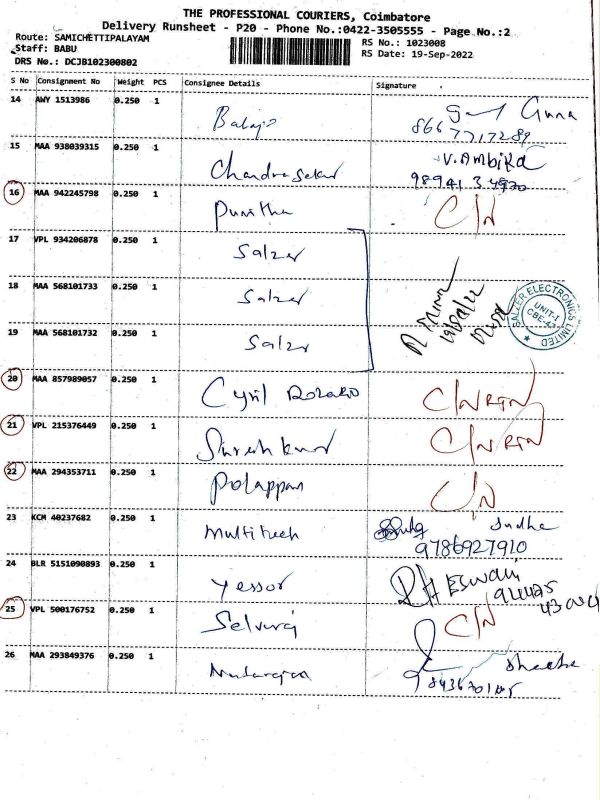 THE PROFESSIONAL COURIERS, Coimbatore
Delivery Runsheet - P20 - Phone No.:0422-3505555 - Page No.:2
Route: SAMICHETTIPALAYAM
RS No.: 1023008
Staff: BABU
RS Date: 19-Sep-2022
DRS No.: DCJB102300802
S No Consignment No Weight PCS Consignee Details Signature
14 AWY 1513986 0.250 1 Balaji Guna
8667717289
15 MAA 938039315 0.250 1 Chandrasekar V. Ambika
16 MAA 942245798 0.250 1 Punitha C/N
17 VPL 934206878 0.250 1 Salzer
18 MAA 568101733 0.250 1 Salzer
19 MAA 568101732 0.250 1 Salzer
SALZER ELECTRONICS LIMITED
UNIT-I
20 MAA 857989057 0.250 1 Cyril Rozario C/N RTN
21 VPL 215376449 0.250 1 Sureshkumar C/N RTN
22 MAA 294353711 0.250 1 Polappan C/N
23 KCM 40237682 0.250 1 Multitech Sudha
9786927910
24 BLR 5151090893 0.250 1 Yessor
25 VPL 500176752 0.250 1 Selvaraj C/N
26 MAA 293849376 0.250 1